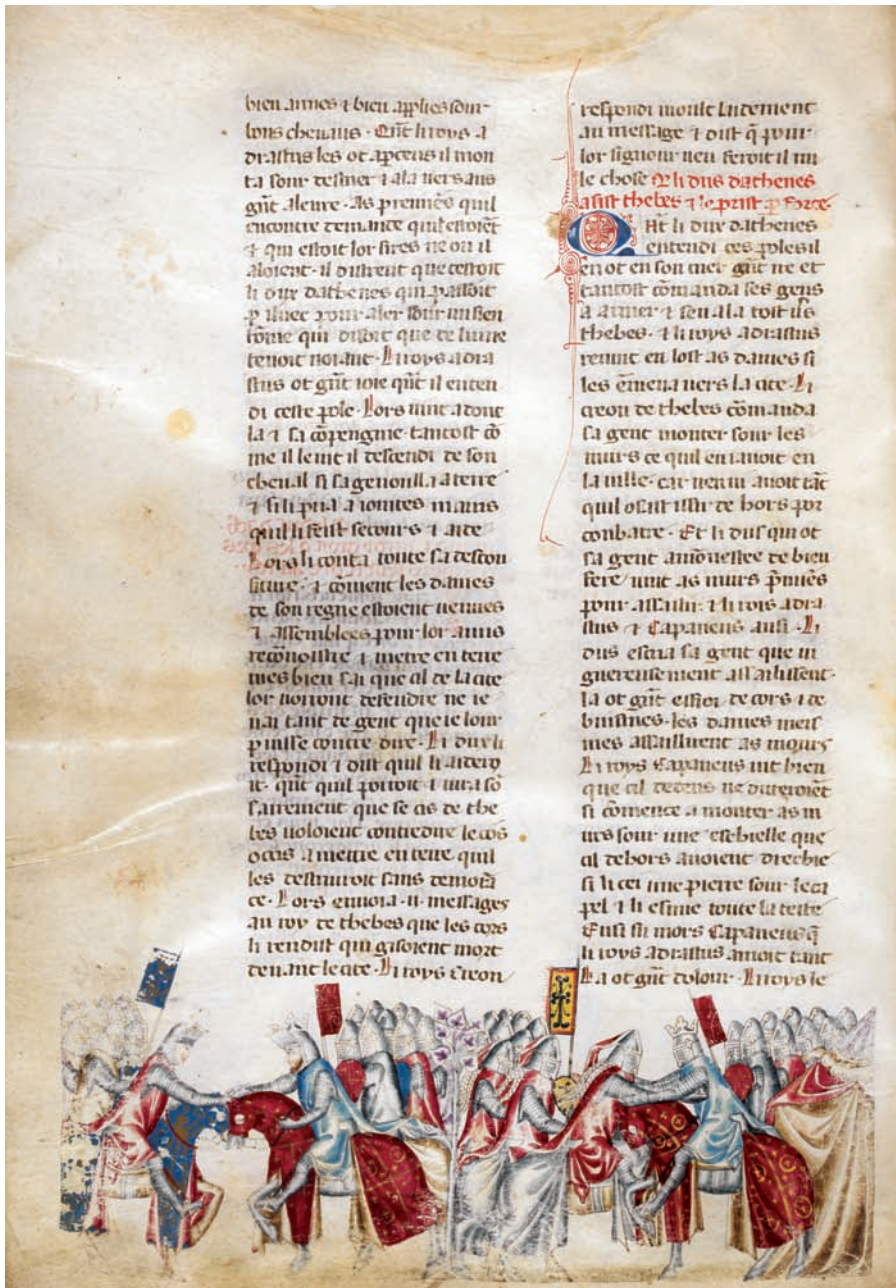 bien armes ⁊ bien applies sour
bons cheuaus · Qñt li roys a
drastus les ot apceus il mon
ta sour destrier ⁊ ala uers aus
gñt aleure · As premiers quil
encontre demande quil estoiẽt
⁊ qui estoit lor sires ne ou il
aloient · il distrent que cestoit
li dux dathenes qui passoit
p iluec pour aler sour un sien
home qui disoit que de lui ne
tenoit noiant · Li roys adra
stus ot gñt ioie qñt il enten
di ceste pole · Lors uint a dont
la ⁊ sa cõpengnie tantost cõ
me il le uit il descendi de son
cheual si sagenoulla a terre
⁊ si li pria a iointes mains
quil li feist secours ⁊ aide
Lors li conta toute sa descon
fiture · ⁊ cõment les dames
de son regne estoient uenues
⁊ assemblees pour lor amis
recõnoistre ⁊ metre en terre
mes bien sai que cil de la cite
lor uorront defendre ne ie
nai tant de gent que ie lour
puisse contre dire · Li dux li
respondi ⁊ dit quil li aidero
it · qñt quil porroit ⁊ iura sõ
sairement que se cis de the
bes uoloient contredire le cors
ocis a mettre en terre quil
les destruiroit sans demorã
ce · Lors enuoia · ii · messages
au roy de thebes que les cors
li rendist qui gisoient mort
deuant le cite · Li roys Creon
respondi moult laidement
au message ⁊ dist q̃ pour
lor signour neu feroit il nu
le chose Q̃ li dus dathenes
asist thebes ⁊ le prist p force·
Qñt li dux dathenes
entendi ces poles il
en ot en son cuer gñt ire et
tantost cõmanda ses gens
a armer ⁊ sen ala toit uers
thebes · ⁊ li roys adrastus
reuint en lost as dames si
les ẽmena uers la cite · Li
creon de thebes cõmanda
sa gent monter sour les
murs ce quil en iauoit en
la uille · car nen ni auoit tãt
quil osast issir de hors por
conbatre · Et li dus qui ot
sa gent amõnestee de bien
fere uint as murs p̃miers
pour assalir ⁊ li rois adra
stus ⁊ Capaneus ausi · Li
dus escria sa gent que ui
guereusement assaillissent·
la ot gñt esfroi de cors ⁊ de
buisines · les dames meis
mes assailluent as mours
Li roys Capaneus uit bien
que cil dedens ne dureroiẽt
si cõmence a monter as m
urs sour une eschielle que
cil dehors auoient drechie
si li cei une pierre sour le ca
pel ⁊ li esmie toute la teste
Ensi fu mors Capaneus q̃
li roys adrastus amoit tant
La ot gñt dolour · Li roys le